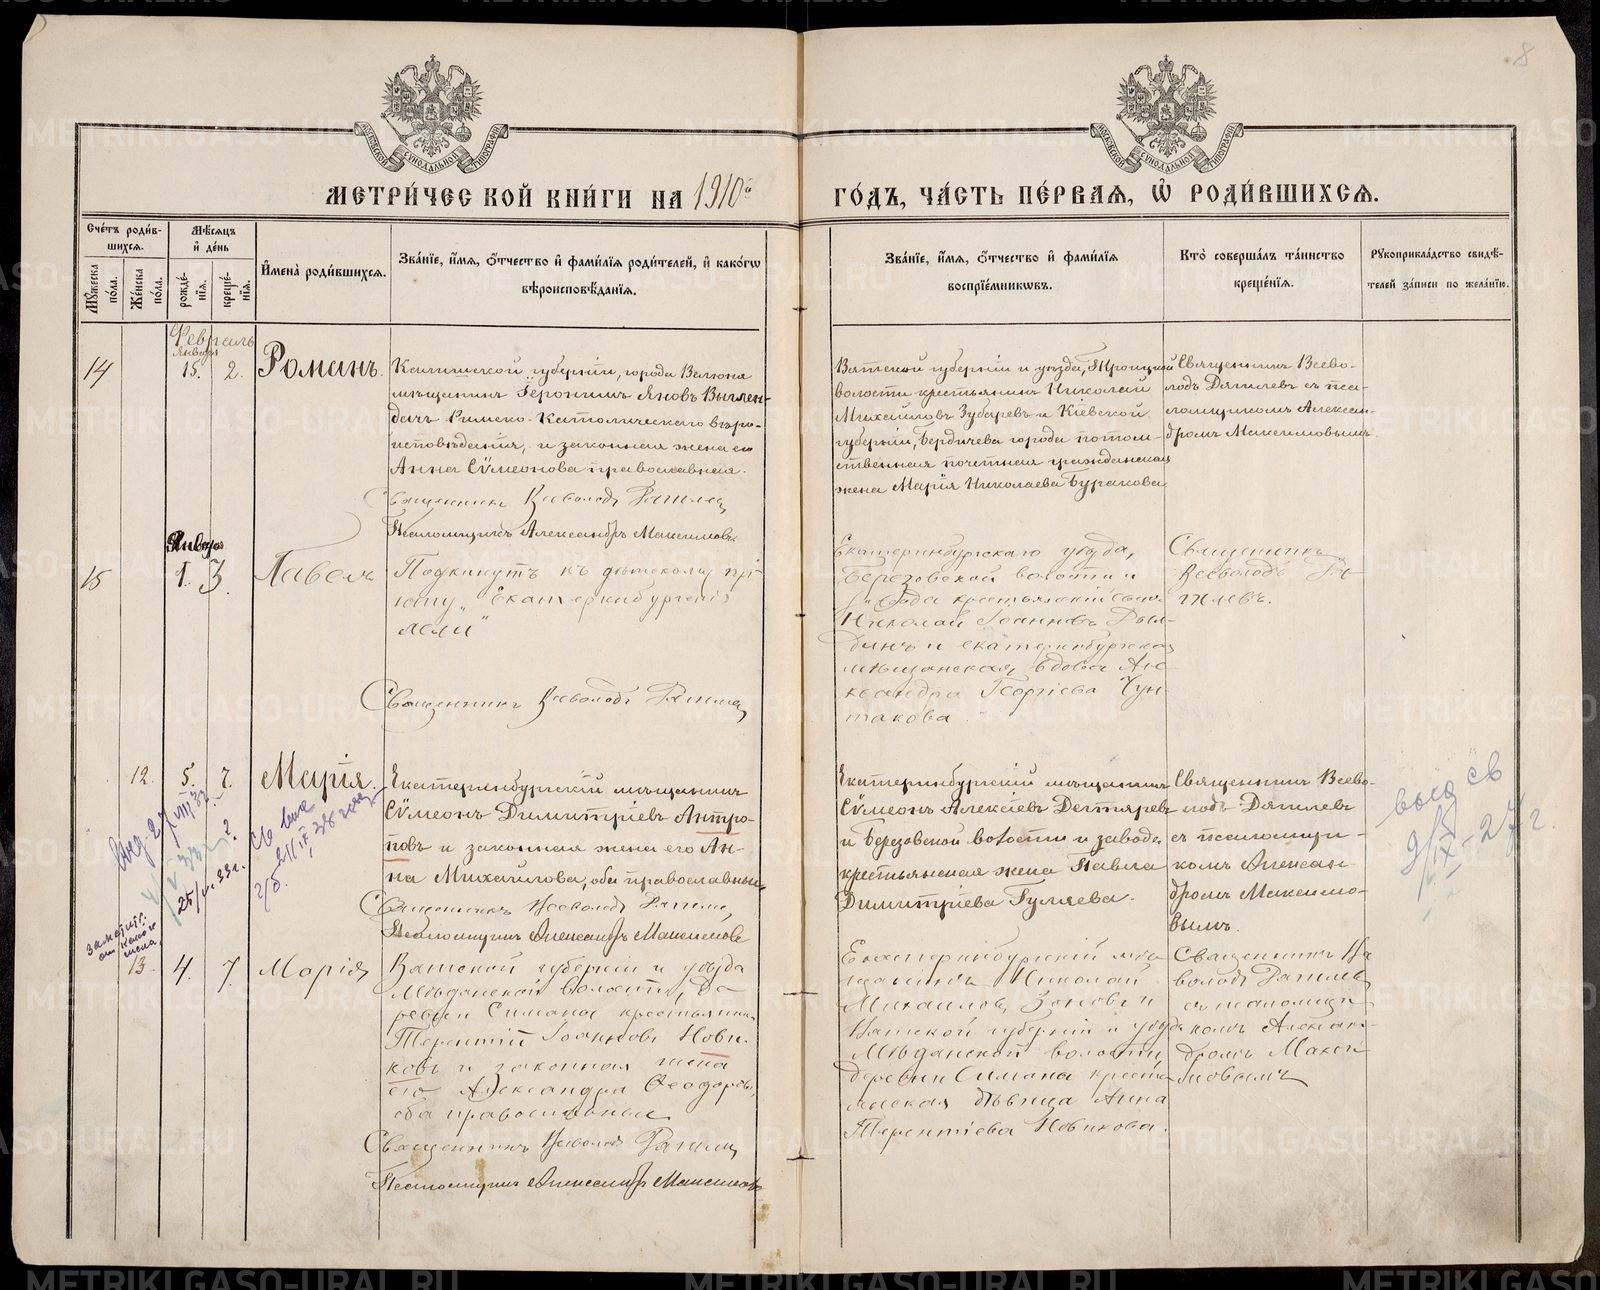 8
МОСКОВСКОЙ СѴНОДАЛЬНОЙ ТИПОГРАФІИ
МОСКОВСКОЙ СѴНОДАЛЬНОЙ ТИПОГРАФІИ
МЕТРИ́ЧЕСКОЙ КНИ́ГИ НА 1910й ГО́ДЪ, ЧА́СТЬ ПЕ́РВАѦ, Ѿ РОДИ́ВШИХСѦ.
Сче́тъ роди́в-
шихсѧ.
Мꙋ́жеска по́ла.
Же́нска по́ла.
Мѣ́сѧцъ и҆ де́нь
рожде́-
нїѧ.
креще́-
нїѧ.
И҆мена̀ роди́вшихсѧ.
Зва́нїе, и҆́мѧ, ѻ҆́тчество и҆ фами́лїѧ роди́телей, и҆ како́гѡ
вѣроисповѣ́данїѧ.
Зва́нїе, и҆́мѧ, ѻ҆́тчество и҆ фами́лїѧ
воспрїе́мникѡвъ.
Кто̀ соверша́лъ та́инство
креще́нїѧ.
Рꙋкоприкла́дство свидѣ́-
телей за́писи по жела́нїю.
Февраль
Января
14
15. 2.
Романъ.
Калишской губерніи, города Велюня
мѣщанинъ Іеронимъ Яновъ
Римско-Католическаго вѣро-
исповѣданія, и законная жена его
Анна Сѵмеонова православная.
Священникъ Всеволодъ Дягилевъ
Псаломщикъ Александръ Максимовъ
Вятской губерніи и уѣзда, Троицкой
волости крестьянинъ Николай
Михайловъ Зубаревъ и Кіевской
губерніи, Бердичева города потом-
ственная почетная гражданская
жена Марія Николаева Буракова
Священникъ Всево-
лодъ Дягилевъ съ пса-
ломщикомъ Алексан-
дромъ Максимовымъ
Января
15
1. 3.
Павелъ
Подкинутъ къ дѣтскому прі-
юту „Екатеринбургскія
ясли"
Священникъ Всеволодъ Дягилевъ
Екатеринбургскаго уѣзда,
Березовской волости и
завода крестьянскій сынъ
Николай Іоанновъ
и екатеринбургская
мѣщанская вдова Алек-
сандра Георгіева Чун-
такова.
Священникъ
Всеволодъ Дя-
гилевъ.
12.
5. 7.
Марія.
Екатеринбургскій мѣщанинъ
Сѵмеонъ Димитріевъ Антро-
повъ и законная жена его Ан-
на Михайлова, оба православные.
Священникъ Всеволодъ Дягилевъ,
Псаломщикъ Александръ Максимовъ
Екатеринбургскій мѣщанинъ
Сѵмеонъ Алексіевъ Дегтяревъ
и Березовской волости и завода
крестьянская жена Павла
Димитріева Гуляева.
Священникъ Всево-
лодъ Дягилевъ
съ псаломщи-
комъ Алексан-
дромъ Максимо-
вымъ.
25/V.33г.
9/IX-27г.
13.
4. 7.
Марія
Вятской губерніи и уѣзда
Мѣдянской волости, де-
ревни Симана крестьянинъ
Терентій Іоанновъ Нови-
ковъ и законная жена
его Александра Ѳеодорова,
оба православные
Священникъ Всеволодъ Дягилевъ
Псаломщикъ Александръ Максимовъ
Екатеринбургскій мѣ-
щанинъ Николай
Михаиловъ и
Вятской губерніи и уѣзда
Мѣдянской волости,
деревни Симана крестья-
янская дѣвица Анна
Терентіева Новикова.
Священникъ Все-
володъ Дягилевъ
съ псаломщи-
комъ Алексан-
дромъ Макси-
мовымъ
METRIKI.GASO-URAL.RU